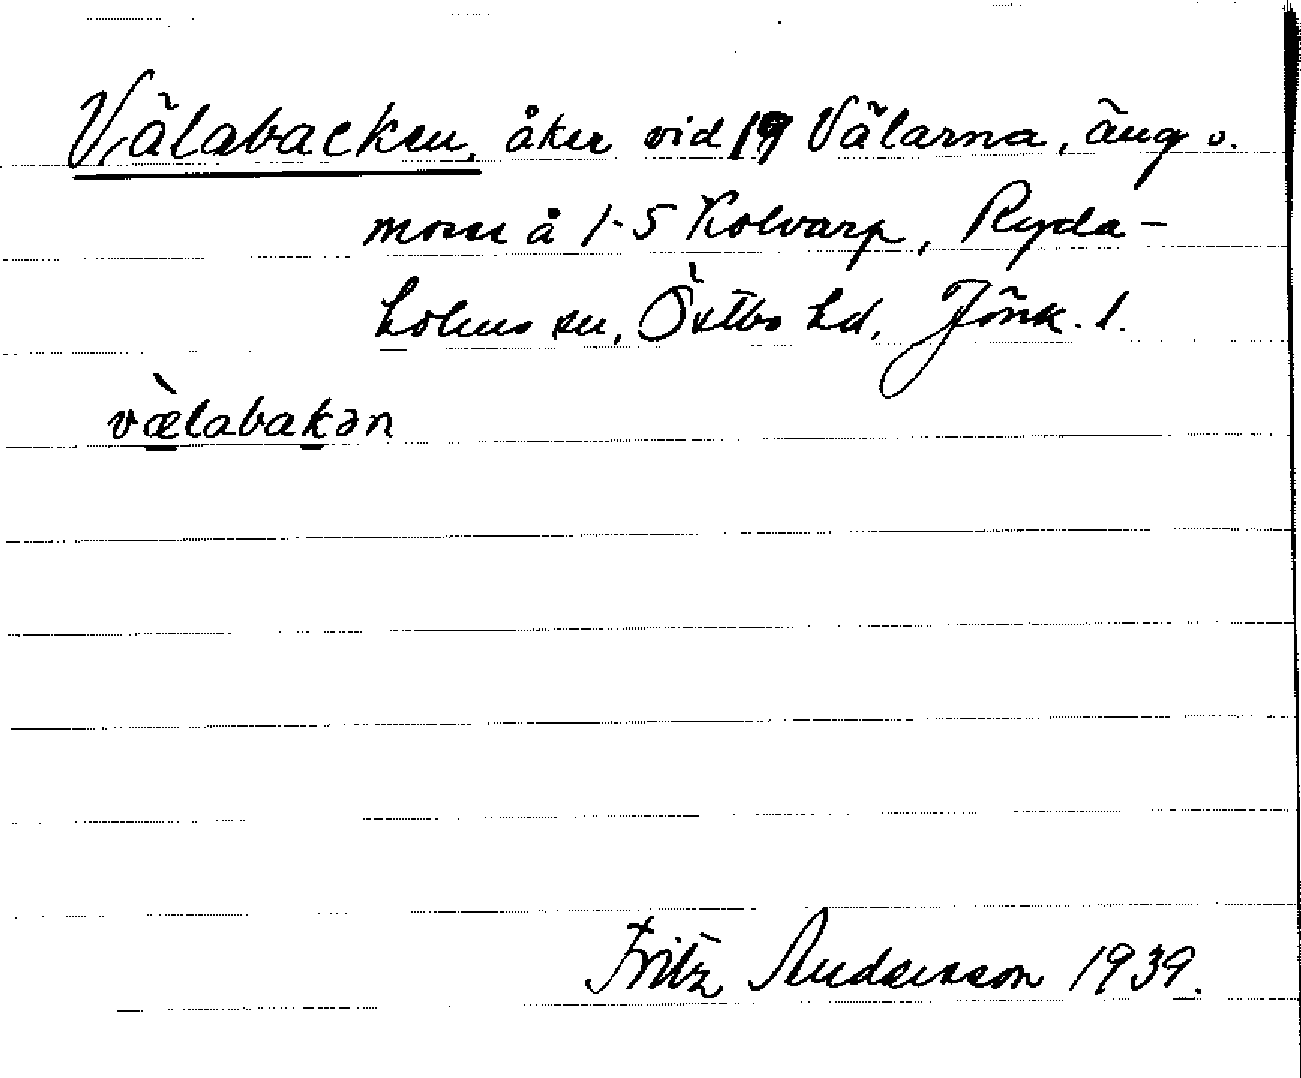 Välabacken, åker vid 19 Välarna, äng o.
mosse å 1-5 Kolvarp, Ryda-
holms sn, Östbo hd, Jönk. l.
vælabakən
Fritz Andersson 1939.